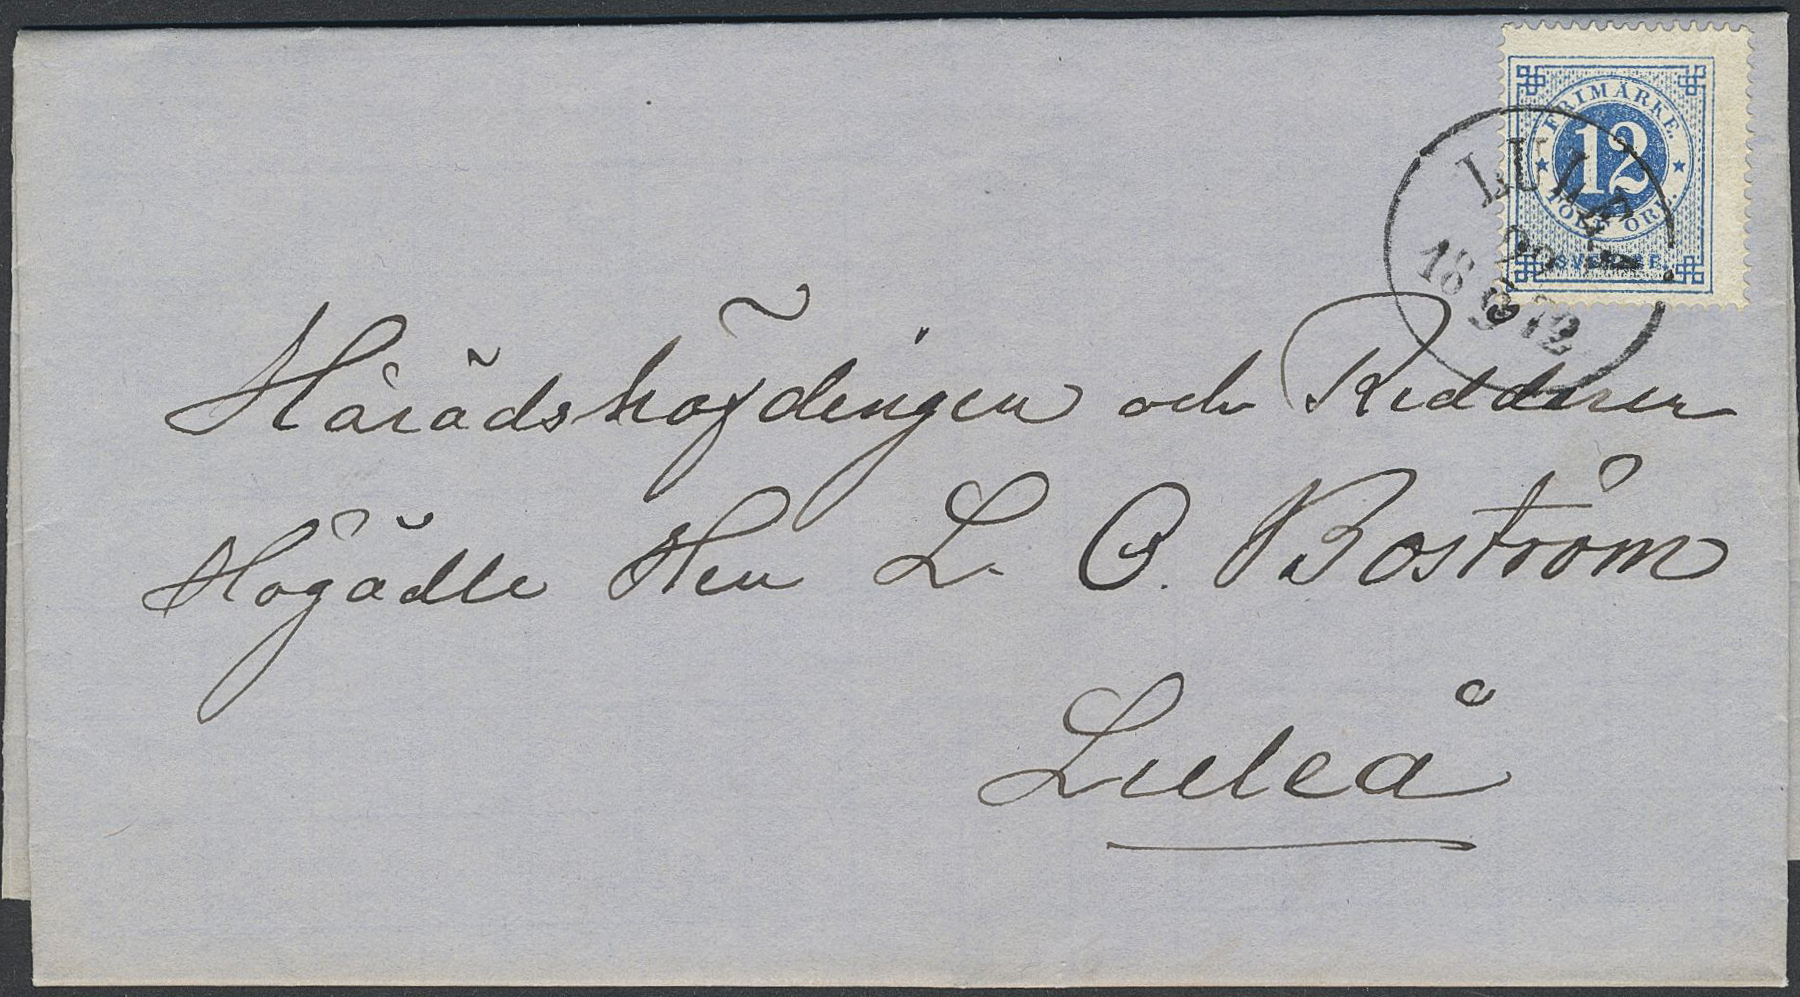 FRIMÄRKE.
12
TOLF ÖRE.
SVERIGE.
LULEÅ
18 72
Häradshöfdingen och Riddaren
Högädle Herr L. O. Boström
Luleå